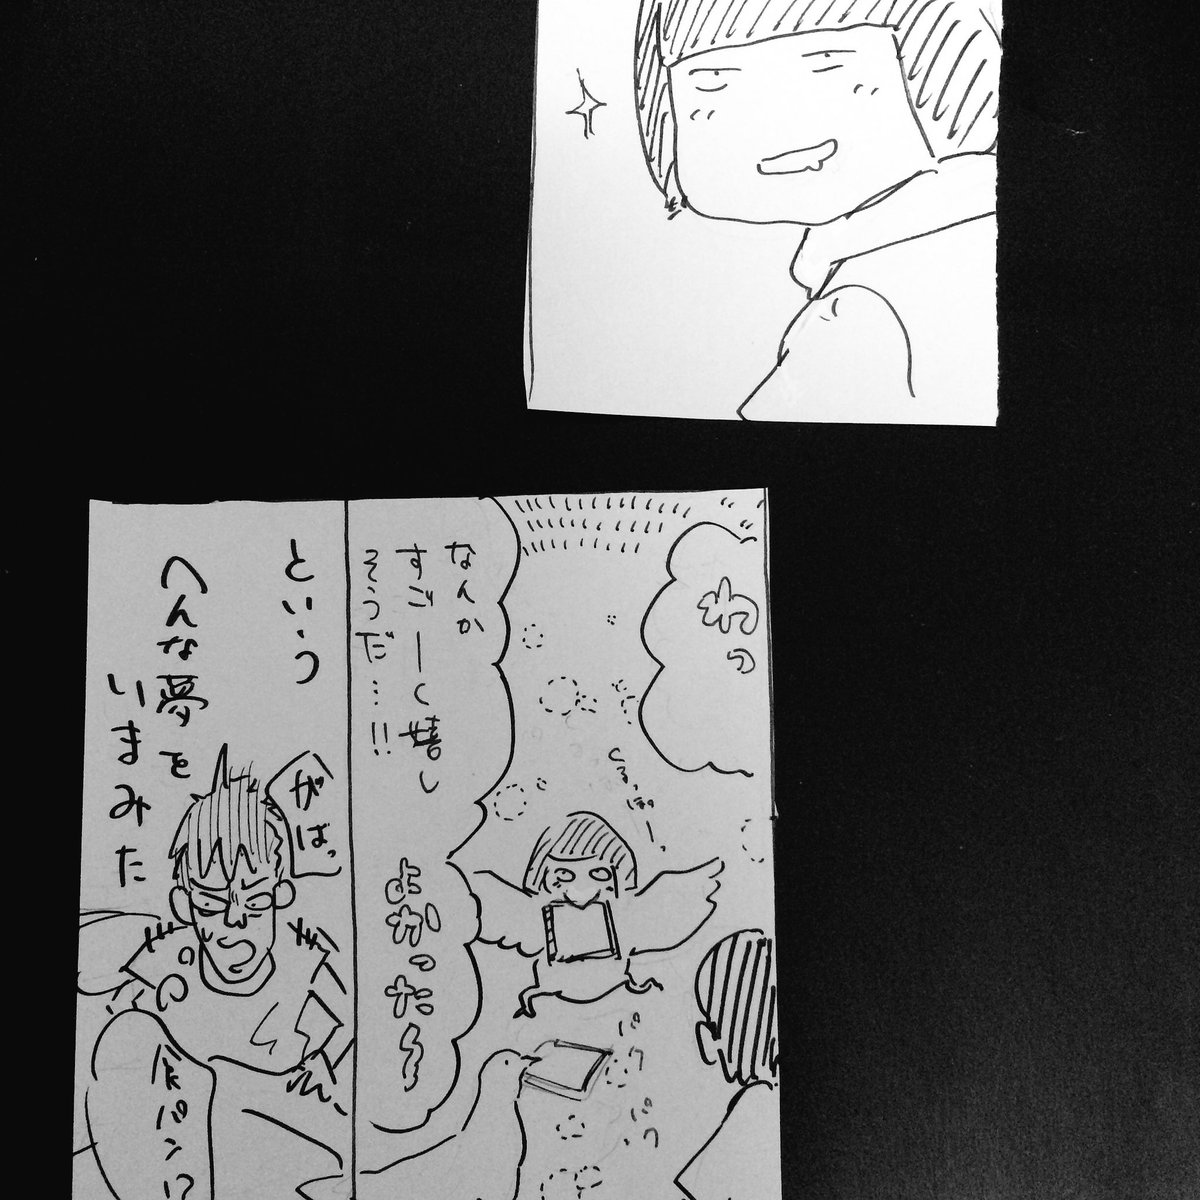 わっ
くるっぽー。
なんか
すごーく嬉し
そうだ…!!
よかった〜
パク
パク
という
へんな夢を
いまみた
がばっ
食パン!?